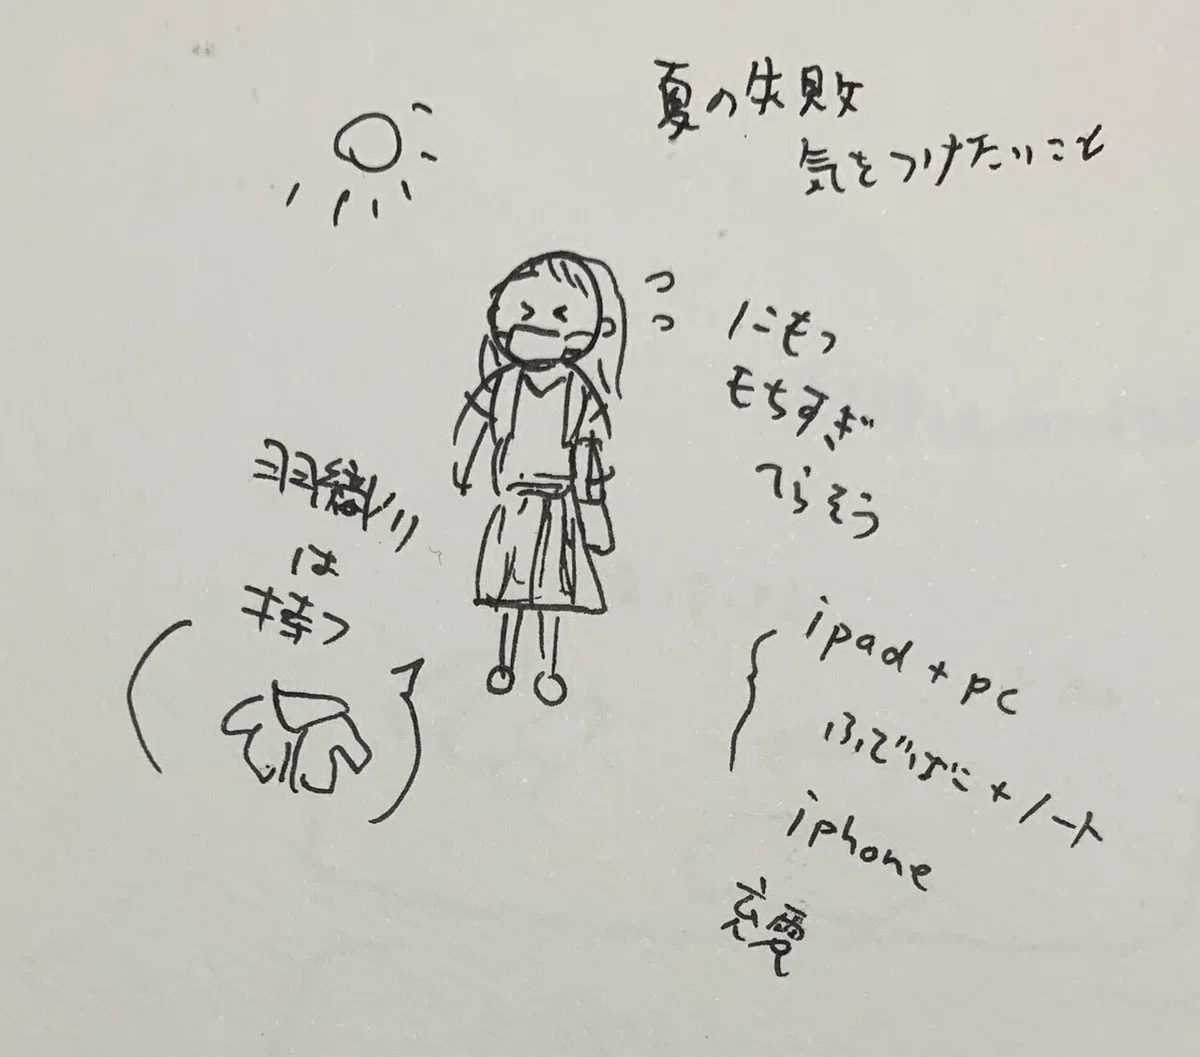 夏の失敗
気をつけたいこと
にもつ
もちすぎ
へらそう
羽織り
は
持つ
ipad + pc
ふでばこ + ノート
iphone
充電